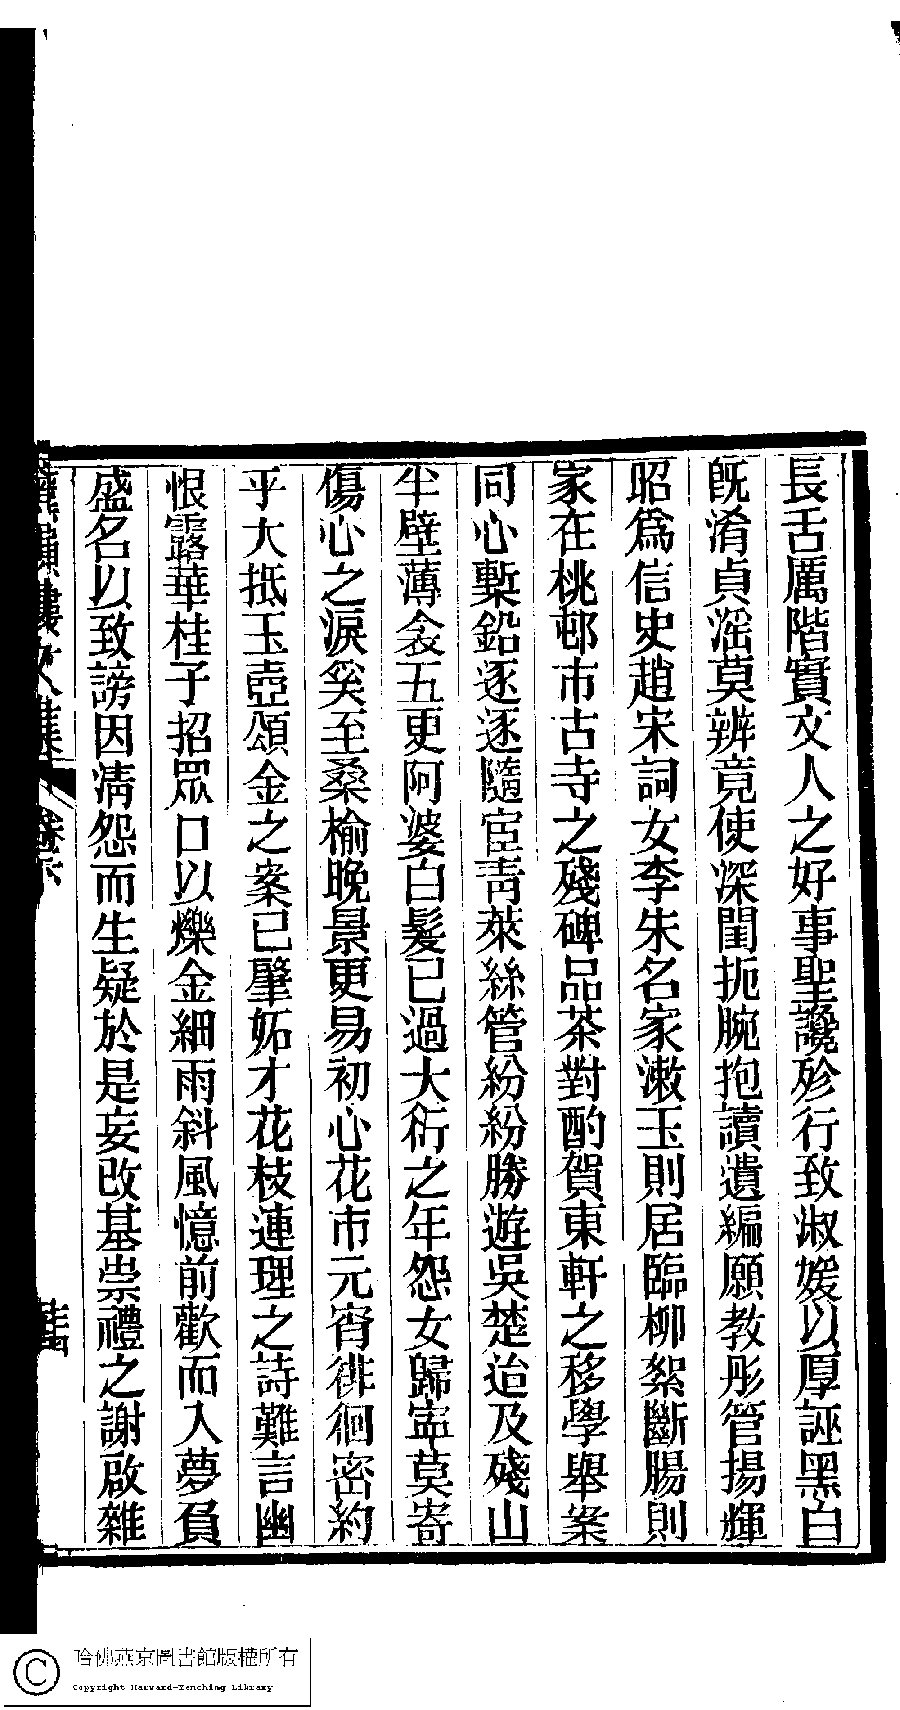 長舌厲階實文人之好事聖讒殄行致淑媛以厚誣黑白
既淆貞淫莫辨竟使深閨扼腕抱讀遺編願教彤管揚輝
昭爲信史趙宋詞女李朱名家漱玉則居臨柳絮斷腸則
家在桃邨市古寺之殘碑品茶對酌賀東軒之移學舉案
同心槧鉛逐逐隨宦靑萊絲管紛紛勝遊吳楚迨及殘山
半壁薄衾五更阿婆白髮已過大衍之年怨女歸寍莫寄
傷心之淚奚至桑榆晚景更易初心花市元宵徘徊密約
乎大抵玉壺頌金之案已肇妬才花枝連理之詩難言幽
恨露華桂子招眾口以爍金細雨斜風憶前歡而入夢負
盛名以致謗因淸怨而生疑於是妄改基崇禮之謝啟雜
樓文集
卷六
哈佛燕京圖書館版權所有
Copyright Harvard-Yenching Library